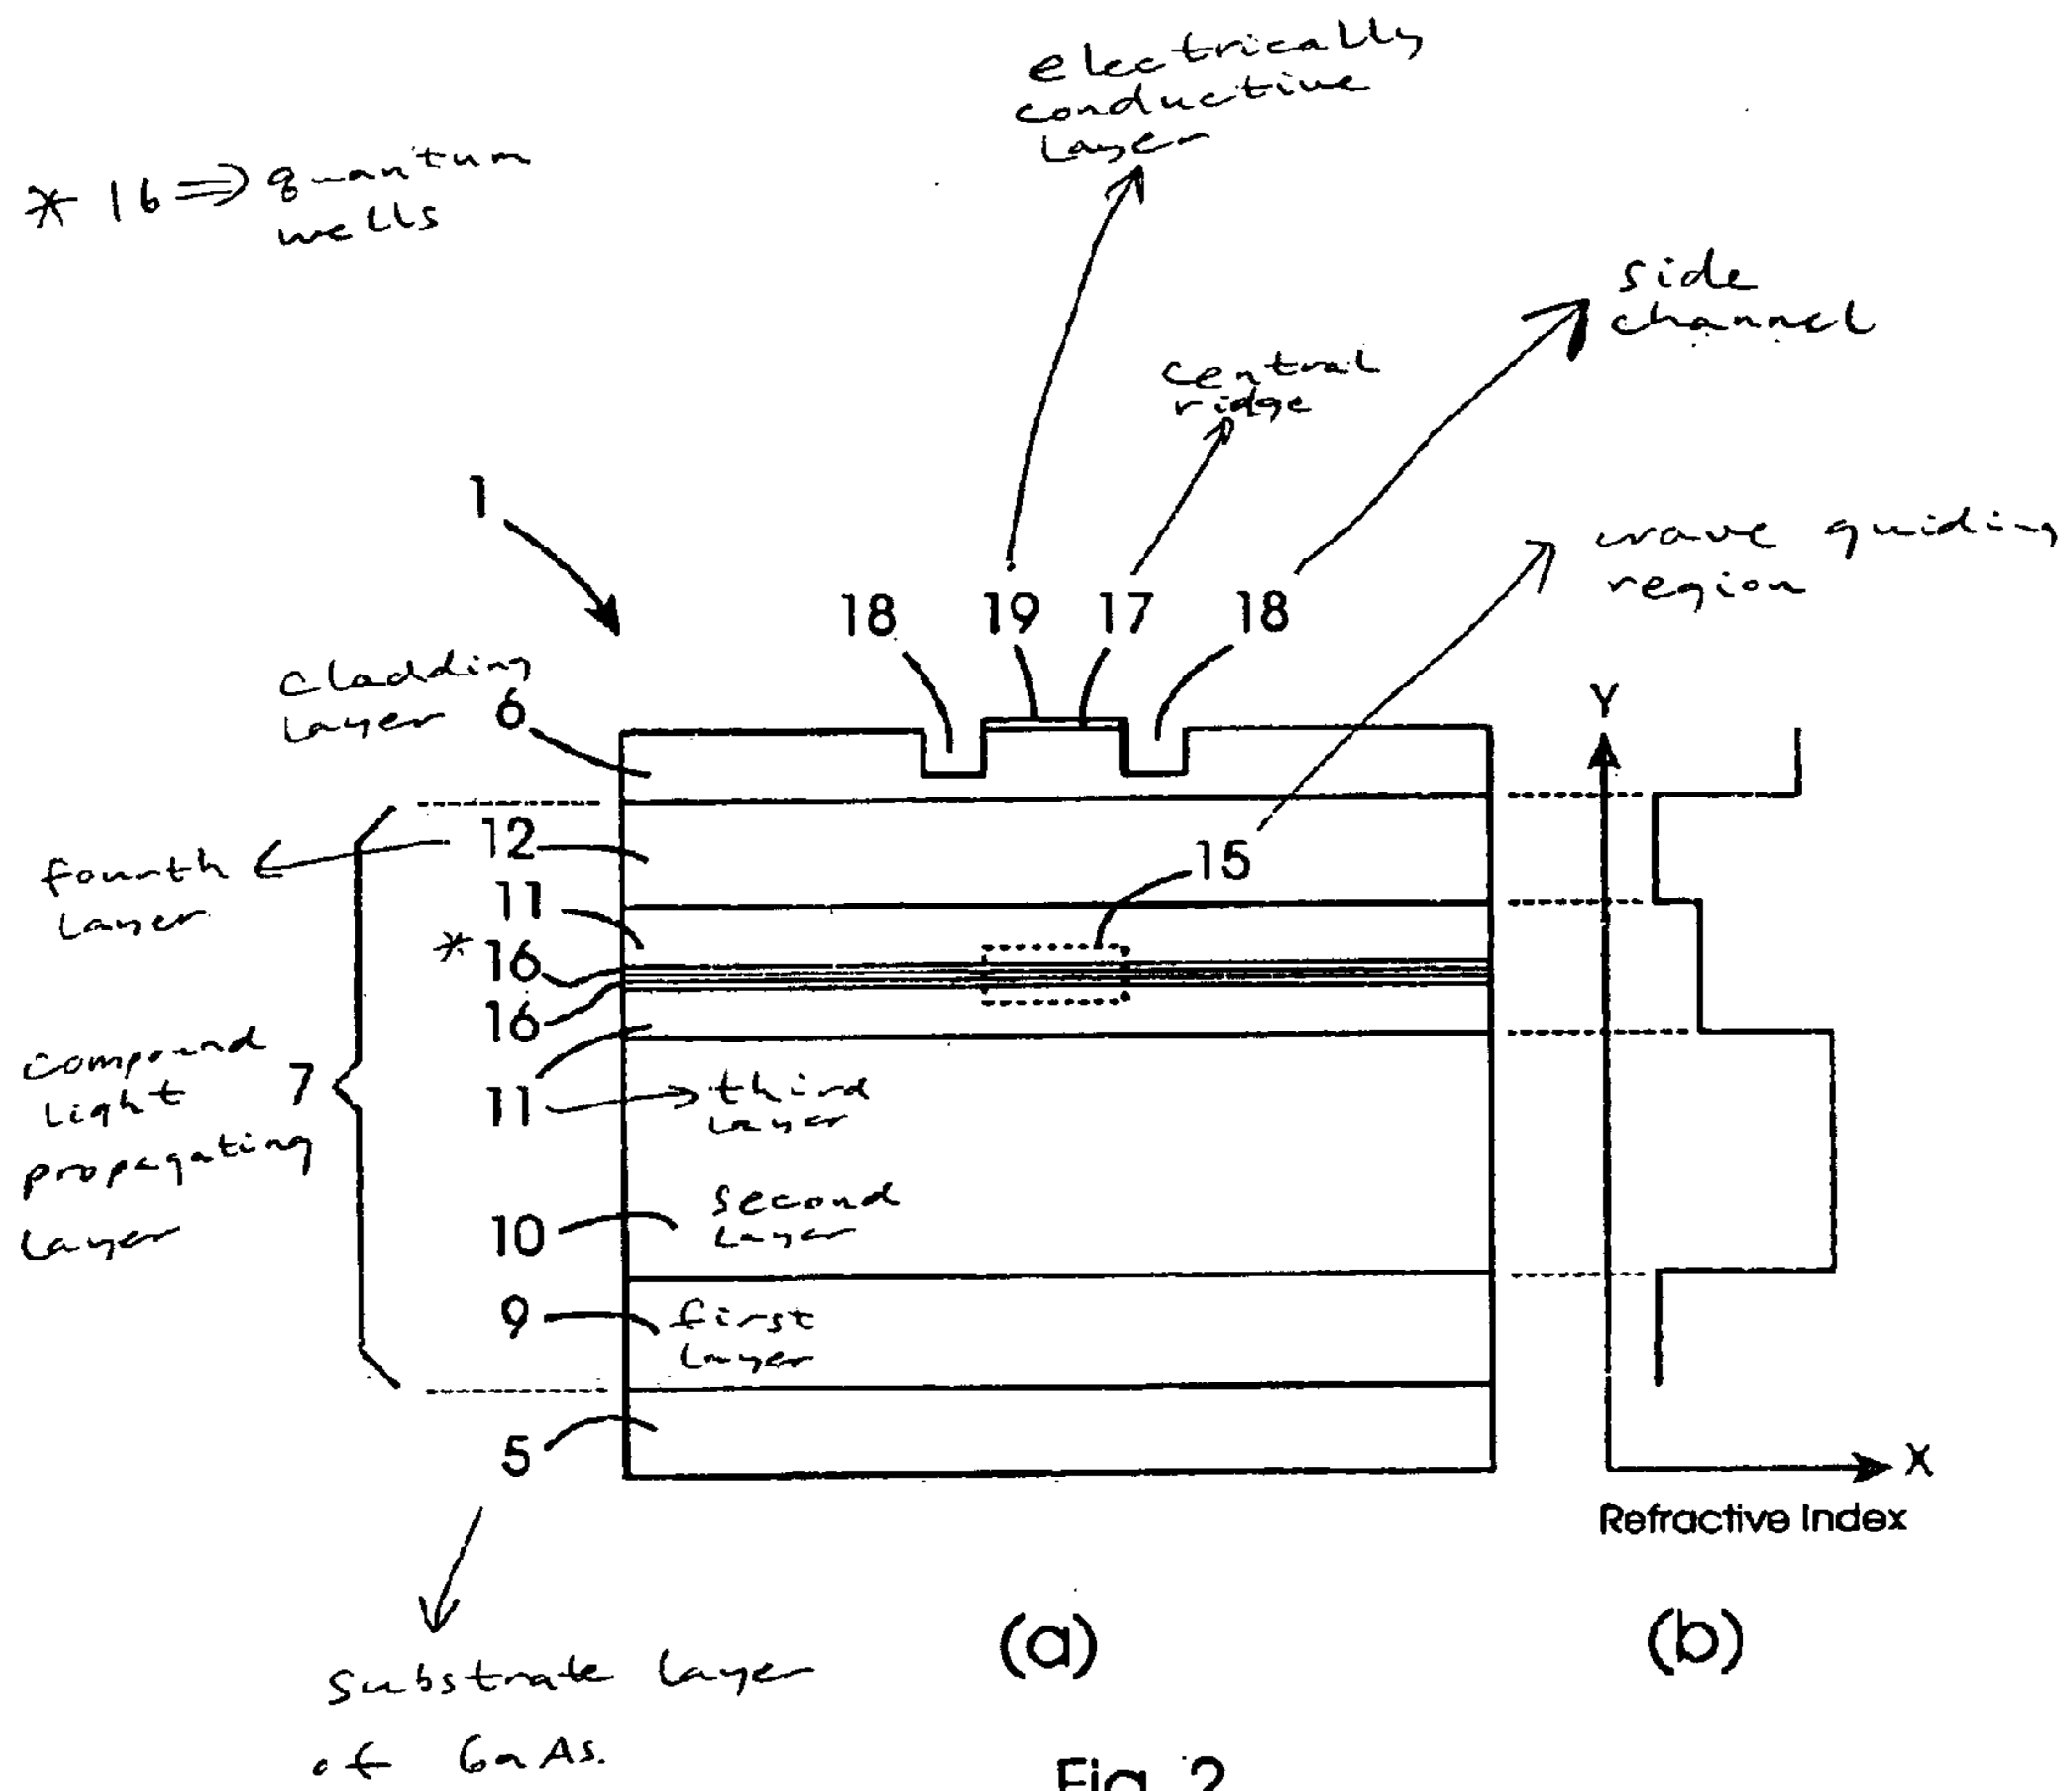 electrically
conductive
layer
* 16 ⇒ quantum
wells
side
channel
central
ridge
1
wave guiding
region
18 19 17 18
cladding
layer 6
Y
fourth
layer
12
15
11
* 16
16
compound
light
propagating
layer
7
11 third
layer
10 second
layer
9 first
layer
5
X
Refractive Index
(a) (b)
Substrate layer
of GaAs.
Fig. 2